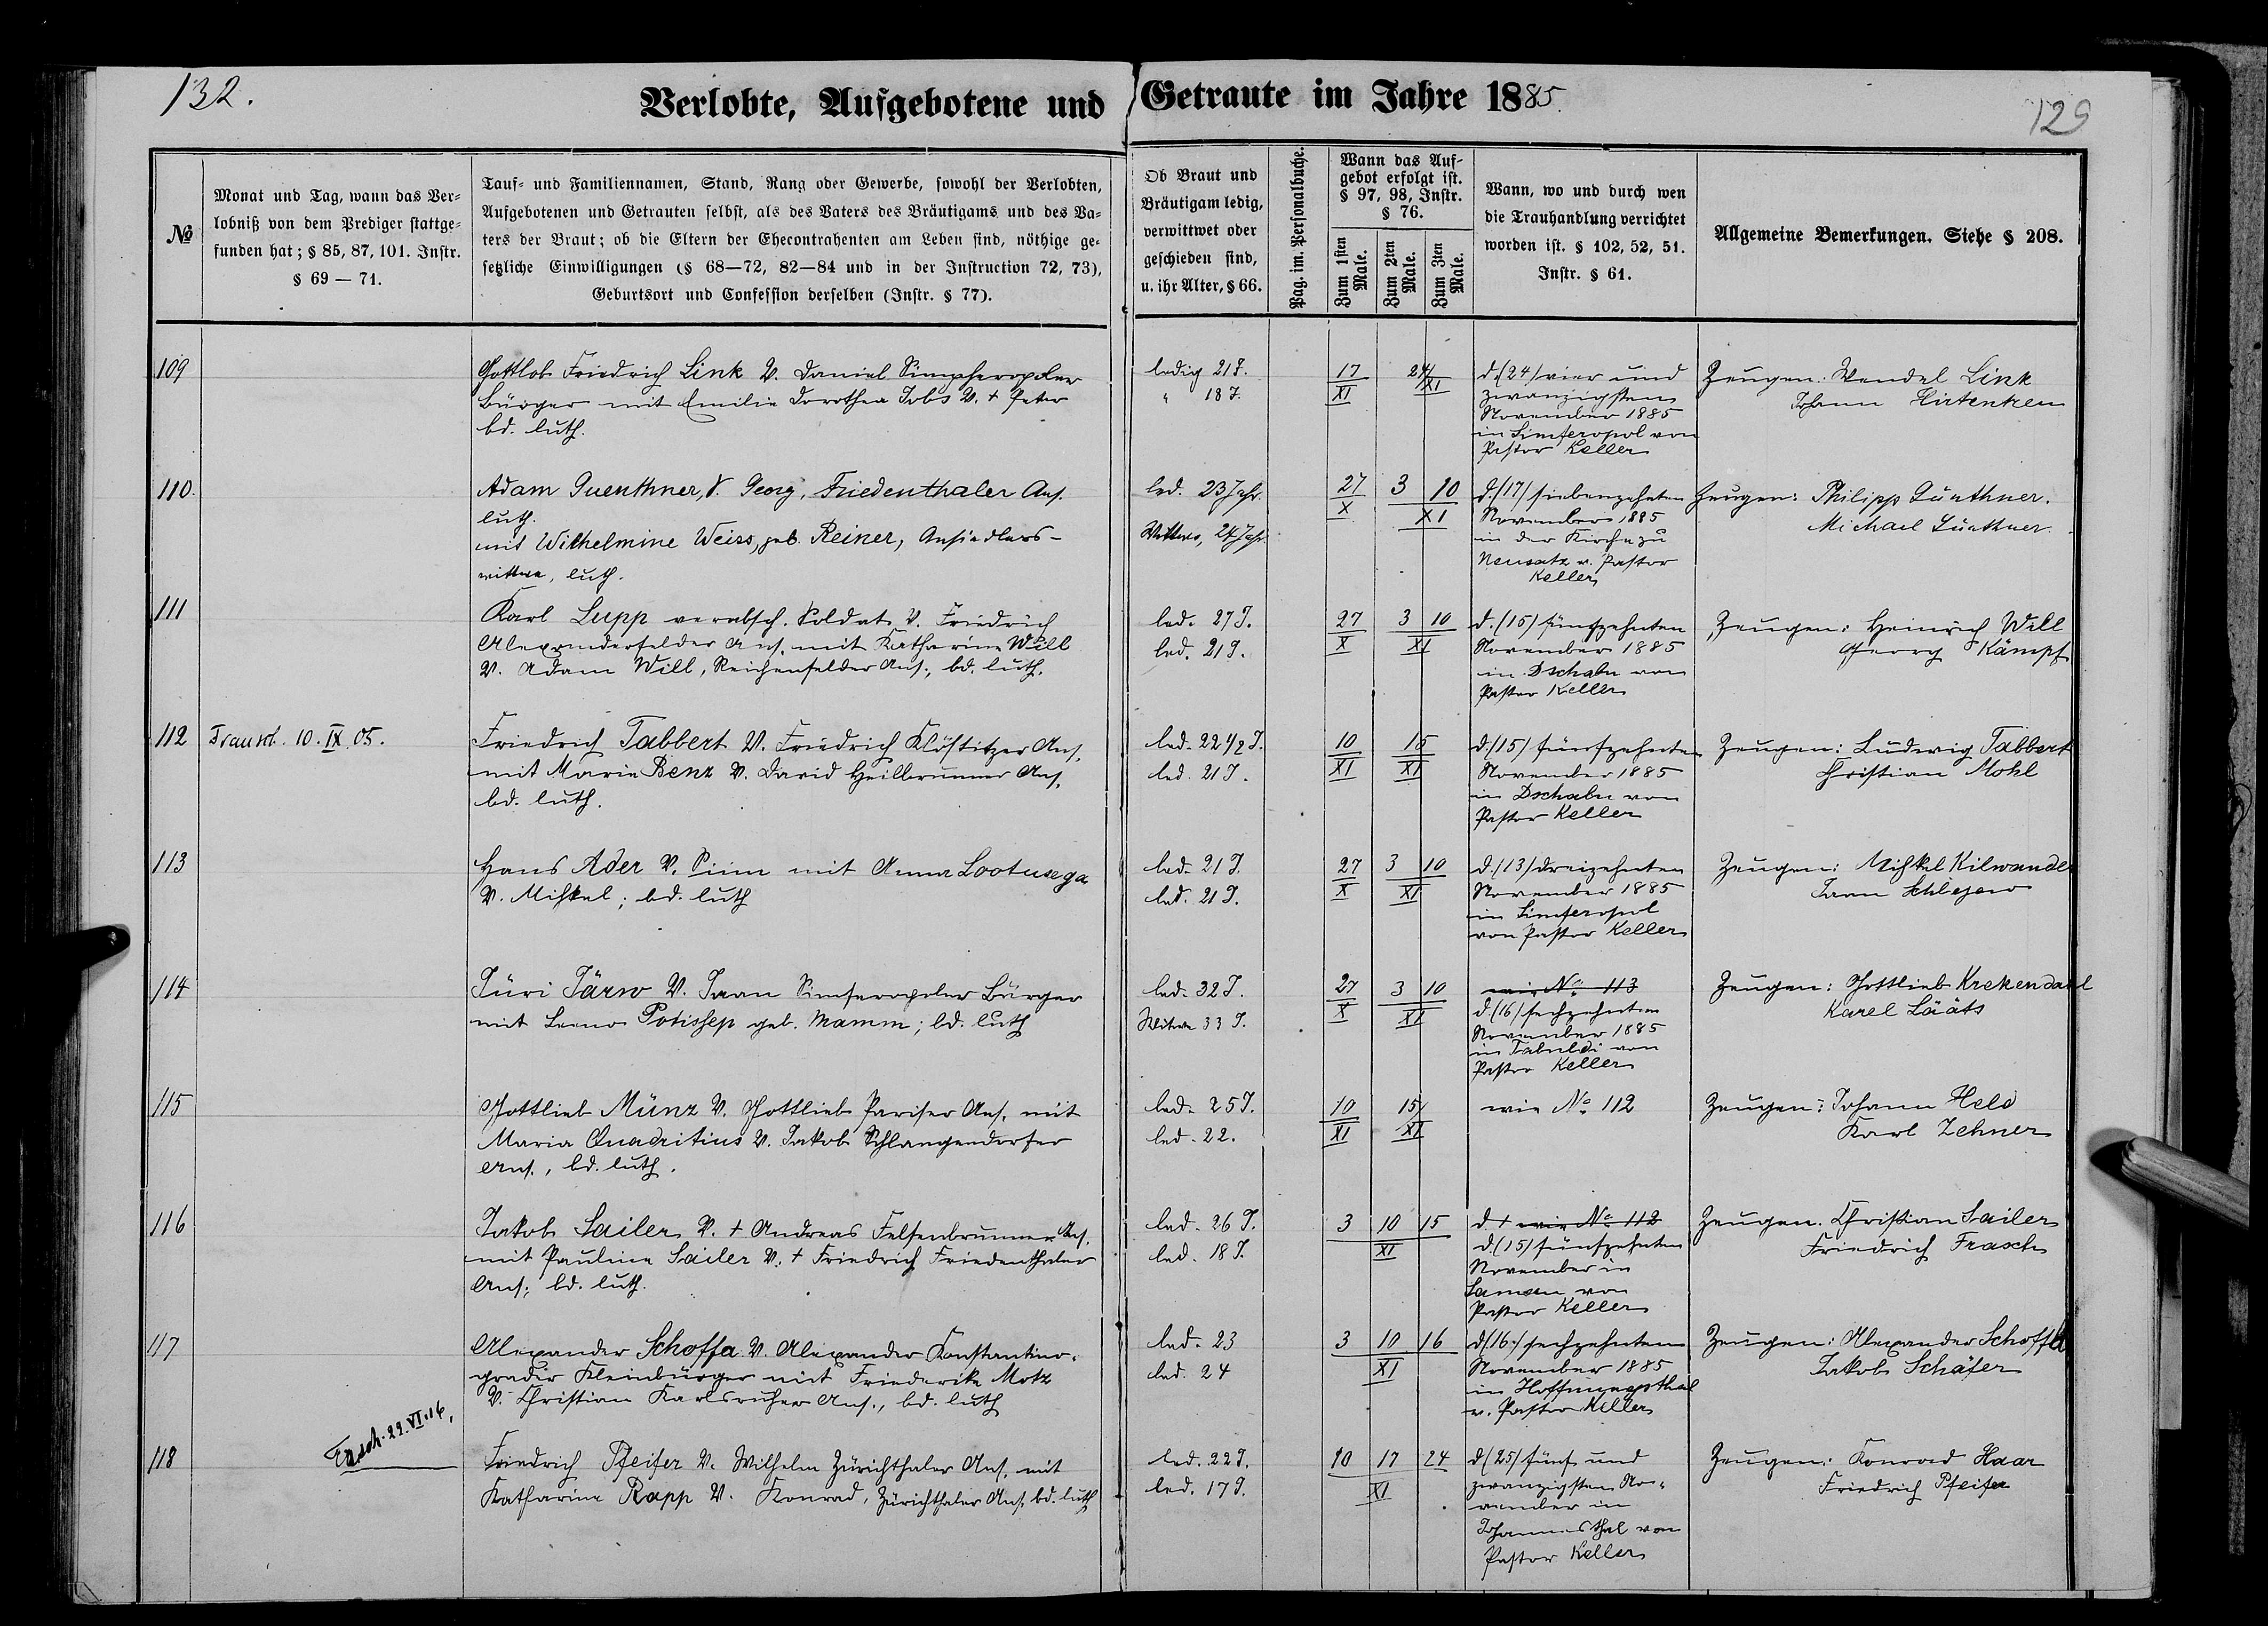 132.
Verlobte, Aufgebotene und Getraute im Jahre 1885.
129
№
Monat und Tag, wann das Ver-
lobniß von dem Prediger stattge-
funden hat; § 85, 87, 101. Instr.
§ 69 — 71.
Tauf- und Familiennamen, Stand, Rang oder Gewerbe, sowohl der Verlobten,
Aufgebotenen und Getrauten selbst, als des Vaters des Bräutigams und des Va-
ters der Braut; ob die Eltern der Ehecontrahenten am Leben sind, nöthige ge-
setzliche Einwilligungen (§ 68—72, 82—84 und in der Instruction 72, 73),
Geburtsort und Confession derselben (Instr. § 77).
Ob Braut und
Bräutigam ledig,
verwittwet oder
geschieden sind,
u. ihr Alter, § 66.
Pag. im. Personalbuche.
Wann das Auf-
gebot erfolgt ist.
§ 97, 98, Instr.
§ 76.
Zum 1sten
Male.
Zum 2ten
Male.
Zum 3ten
Male.
Wann, wo und durch wen
die Trauhandlung verrichtet
worden ist. § 102, 52, 51.
Instr. § 61.
Allgemeine Bemerkungen. Siehe § 208.
109
Gottlob Friedrich Link V. Daniel Simpheropoler
Bürger mit Emilie Dorothea Jobs V. + Peter
bd. luth.
ledig 21 J.
" 18 J.
17
XI
24
XI
d. (24) vier und
zwanzigsten
November 1885
in Simferopol von
Pastor Keller
Zeugen: Wendel Link
Johann
110.
Adam Guenthner, V. Georg, Friedenthaler Ans.
luth.
mit Wilhelmine Weiss, geb. Reiner, Ansiedlers-
wittwe, luth.
led. 23 Jahr.
Wittwe, 24 Jahr.
27
X
3 10
XI
d. (17) siebenzehnten
November 1885
in der Kirche zu
Neusatz v. Pastor
Keller
Zeugen: Philipp Günthner.
Michael Günthner.
111
Karl Lupp verabsch. Soldat V. Friedrich
Alexanderfelder Ans. mit Katharine Will
V. Adam Will, Reichenfelder Ans., bd. luth.
led. 27 J.
led. 21 J.
27
X
3 10
XI
d. (15) fünfzehnten
November 1885
in Dschabu von
Pastor Keller
Zeugen: Heinrich Will
Georg Kämpf
112
Transcl. 10. IX. 05.
Friedrich Tabbert V. Friedrich Klöstitzer Ans.
mit Marie Benz V. David Heilbrunner Ans.
bd. luth.
led. 22 1/2 J.
led. 21 J.
10
XI
15
XI
d. (15) fünfzehnten
November 1885
in Dschabu von
Pastor Keller
Zeugen: Ludewig Tabbert
Christian Mohl
113
Hans Ader V. Piim mit Anna Lootusega
V. Mihkel; bd. luth
led. 21 J.
led. 21 J.
27
X
3 10
XI
d. (13) dreizehnten
November 1885
in Simferopol
von Pastor Keller
Zeugen: Mihkel Kilwandel
Jaan Schlejew
114
Jüri Järw V. Jaan Simferopoler Bürger
mit Leeno Potissep geb. Mamm; bd. luth
led. 32 J.
Witwe 33 J.
27
X
3 10
XI
wie No 113
d (16) sechzehnten
November 1885
in Tabuldi von
Pastor Keller
Zeugen: Gottlieb Krekendahl
Karel Lääts
115
Gottlieb Münz V. Gottlieb Pariser Ans. mit
Maria Quadritius V. Jakob Schlangendorfer
Ans., bd. luth.
led. 25 J.
led. 22.
10
XI
15
XI
wie No 112
Zeugen: Johann Held
Karl Zehner
116
Jakob Sailer V. + Andreas Felsenbrunner Ans.
mit Pauline Sailer V. + Friedrich Friedenthaler
Ans; bd. luth.
led. 26 J.
led. 18 J.
3 10 15
XI
d. + wie No 112
d. (15) fünfzehnten
November in
Samau von
Pastor Keller
Zeugen. Christian Sailer
Friedrich Frasch
117
Alexander Schoffa V. Alexander Konstantino-
grader Kleinbürger mit Friederike Motz
V. Christian Karlsruher Ans., bd. luth
led. 23
led. 24
3 10 16
XI
d (16.) sechzehnten
November 1885
in Hoffnungsthal
v. Pastor Keller
Zeugen: Alexander Schoffa
Jakob Schäfer
118
29. VI. 16.
Friedrich Pfeifer V. Wilhelm Zürichthaler Ans. mit
Katharina Rapp V. Konrad, Zürichthaler Ans. bd. luth
led. 22 J.
led. 17 J.
10 17 24
XI
d (25) fünf und
zwanzigsten No-
vember in
Johannesthal von
Pastor Keller
Zeugen: Konrad Haar
Friedrich Pfeifer